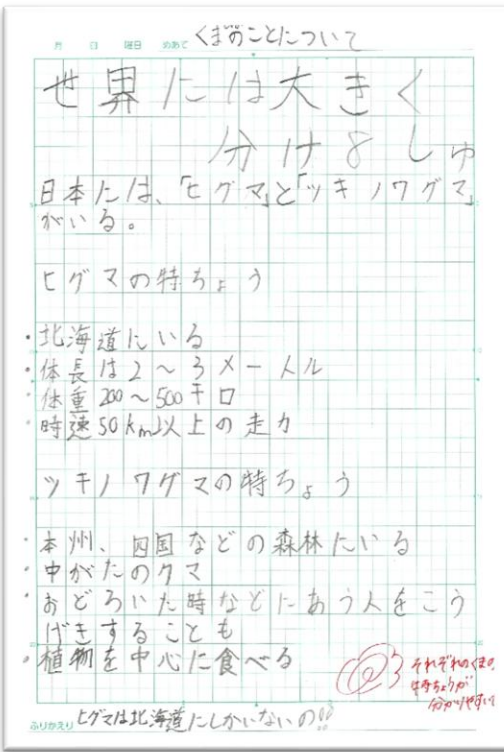 月 日 曜日 めあて くまのことについて
世界には大きく
分け8しゅ
日本には、「ヒグマ」と「ツキノワグマ」
がいる。
ヒグマの特ちょう
・北海道にいる
・体長は2〜3メートル
・体重200〜500キロ
・時速50km以上の走力
ツキノワグマの特ちょう
・本州、四国などの森林にいる
・中がたのクマ
・おどろいた時などにあう人をこう
げきすることも
・植物を中心に食べる
それぞれのくまの
特ちょうが
分かりやすい
ふりかえり ヒグマは北海道にしかいないの!!